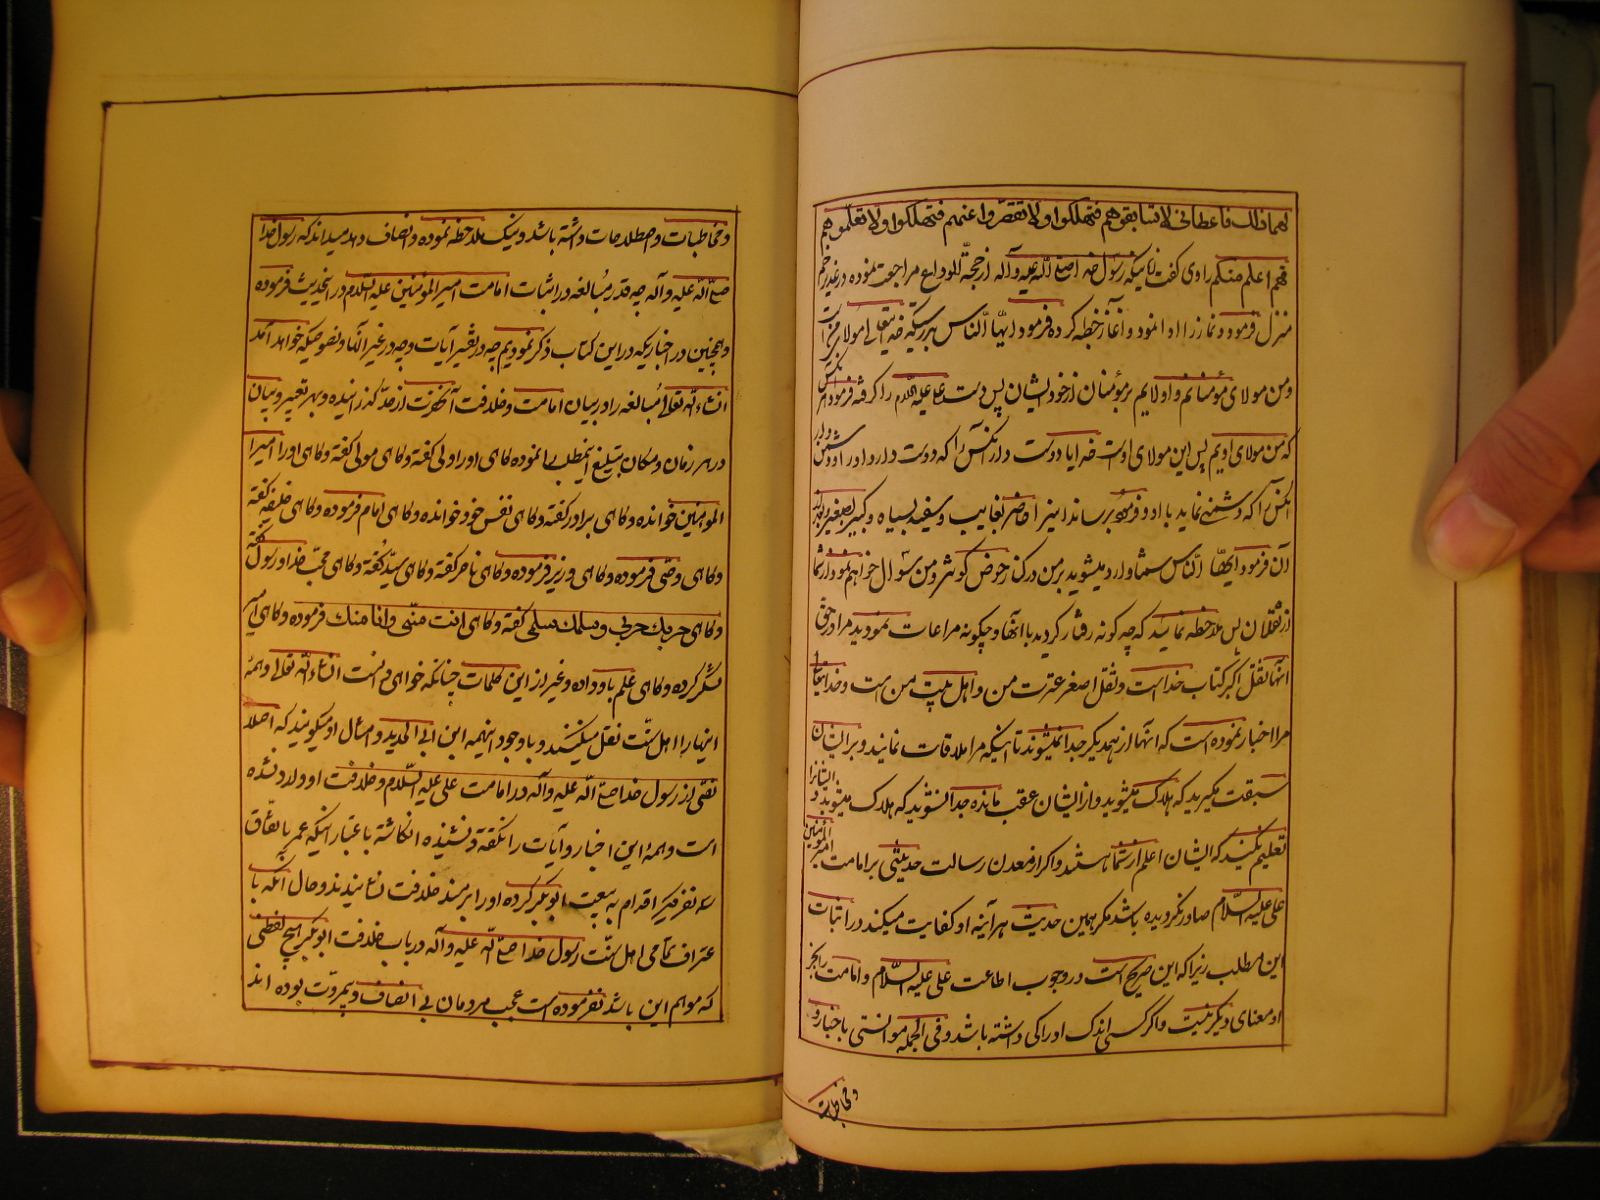 لهما ذلك فاعطانی لا تسابقوهم فتهلکوا ولا تقصروا عنهم فتهلکوا ولا تعلموهم
فهم اعلم منکم راوی گفت تا اینکه رسول خدا صلی الله علیه وآله از حجة الوداع مراجعت نموده در غدیر خم
منزل فرموده ونماز را ادا نمود وآغاز خطبه کرده فرمود ایها الناس بدرستیکه خدایتعالی مولای من است
ومن مولای مؤمنانم و اولایم بر مؤمنان از خود ایشان پس دست علی علیه السلام را گرفته فرمود هر آنکس
که من مولای اویم پس این مولای اوست خدایا دوست دار آنکس را که دوست دارد او را و دشمن دار
آنکس را که دشمنی نماید با او و فرمود برساند اینرا حاضر بغایب و سفید بسیاه و کبیر بصغیر
آن فرمود ایها الناس شما وارد میشوید بر من در کنار حوض کوثر و من سؤال خواهم نمود از شما
از ثقلان پس ملاحظه نمائید که چه گونه رفتار کردید با آنها و چگونه مراعات نمودید مرا در حق
آنها ثقل اکبر کتاب خداست و ثقل اصغر عترت من و اهل بیت من است و خدایتعالی
مرا اخبار نموده است که آنها از همدیگر جدا نمیشوند تا اینکه مرا ملاقات نمایند و بر ایشان
سبقت مگیرید که هلاک میشوید و از ایشان عقب مانده جدا نشوید که هلاک میشوید و ایشانرا
تعلیم نکنید که ایشان اعلم از شما هستند و اگر از معدن رسالت حدیثی بر امامت امیر المؤمنین
علی علیه السلام صادر نگردیده باشد مگر همین حدیث هر آینه او کفایت میکند در اثبات
این مطلب زیرا که این صریح است در وجوب اطاعت علی علیه السلام و امامت را بجز
او معنای دیگر نیست و اگر کسی اندک ادراکی داشته باشد و فی الجمله موانستی باخبار و
ومخاطبات
ومخاطبات واصطلاحات داشته باشد و نیک ملاحظه نموده وانصاف دهد میداند که رسول خدا
صلی الله علیه وآله چه قدر مبالغه در اثبات امامت امیر المؤمنین علیه السلام در اینحدیث فرموده
وهمچنین در اخباریکه در این کتاب ذکر نمودیم چه در تفسیر آیات و چه در غیر آنها و نصوصیکه خواهد آمد
انشاء الله تعالی مبالغه را در بیان امامت و خلافت آنحضرت از حد گذرانیده و بهر تعبیر و بیان
در هر زمان و مکان تبلیغ اینمطلب را نموده گاهی او را ولی گفته و گاهی مولی گفته و گاهی او را امیر
المؤمنین خوانده و گاهی برادر گفته و گاهی نفس خود خوانده و گاهی امام فرموده و گاهی خلیفه گفته
و گاهی وصی فرموده و گاهی وزیر فرموده و گاهی ناصر گفته و گاهی سید گفته و گاهی محب خدا و رسول گفته
و گاهی حربك حربی وسلمك سلمی گفته و گاهی انت منی وانا منك فرموده و گاهی امیر
لشکر کرده و گاهی علم باو داده و غیر از این کلمات چنانکه خواهی دانست انشاء الله تعالی و همه
اینها را اهل سنت نقل میکنند و با وجود اینهمه ابن ابی الحدید و امثال او میگویند که اصلا
نصی از رسول خدا صلی الله علیه وآله در امامت علی علیه السلام و خلافت او وارد نشده
است و همه این اخبار و آیات را نگفته و نشنیده انگاشته باعتبار اینکه عمر باتفاق
سه نفر دیگر اقدام به بیعت ابو بکر کرده او را بر مسند خلافت نشانیدند و حال آنکه با
عتراف تمامی اهل سنت رسول خدا صلی الله علیه وآله در باب خلافت ابو بکر هیچ لفظی
که موهم این باشد نفرموده است عجب مردمان بی انصاف و بیمروت بوده اند